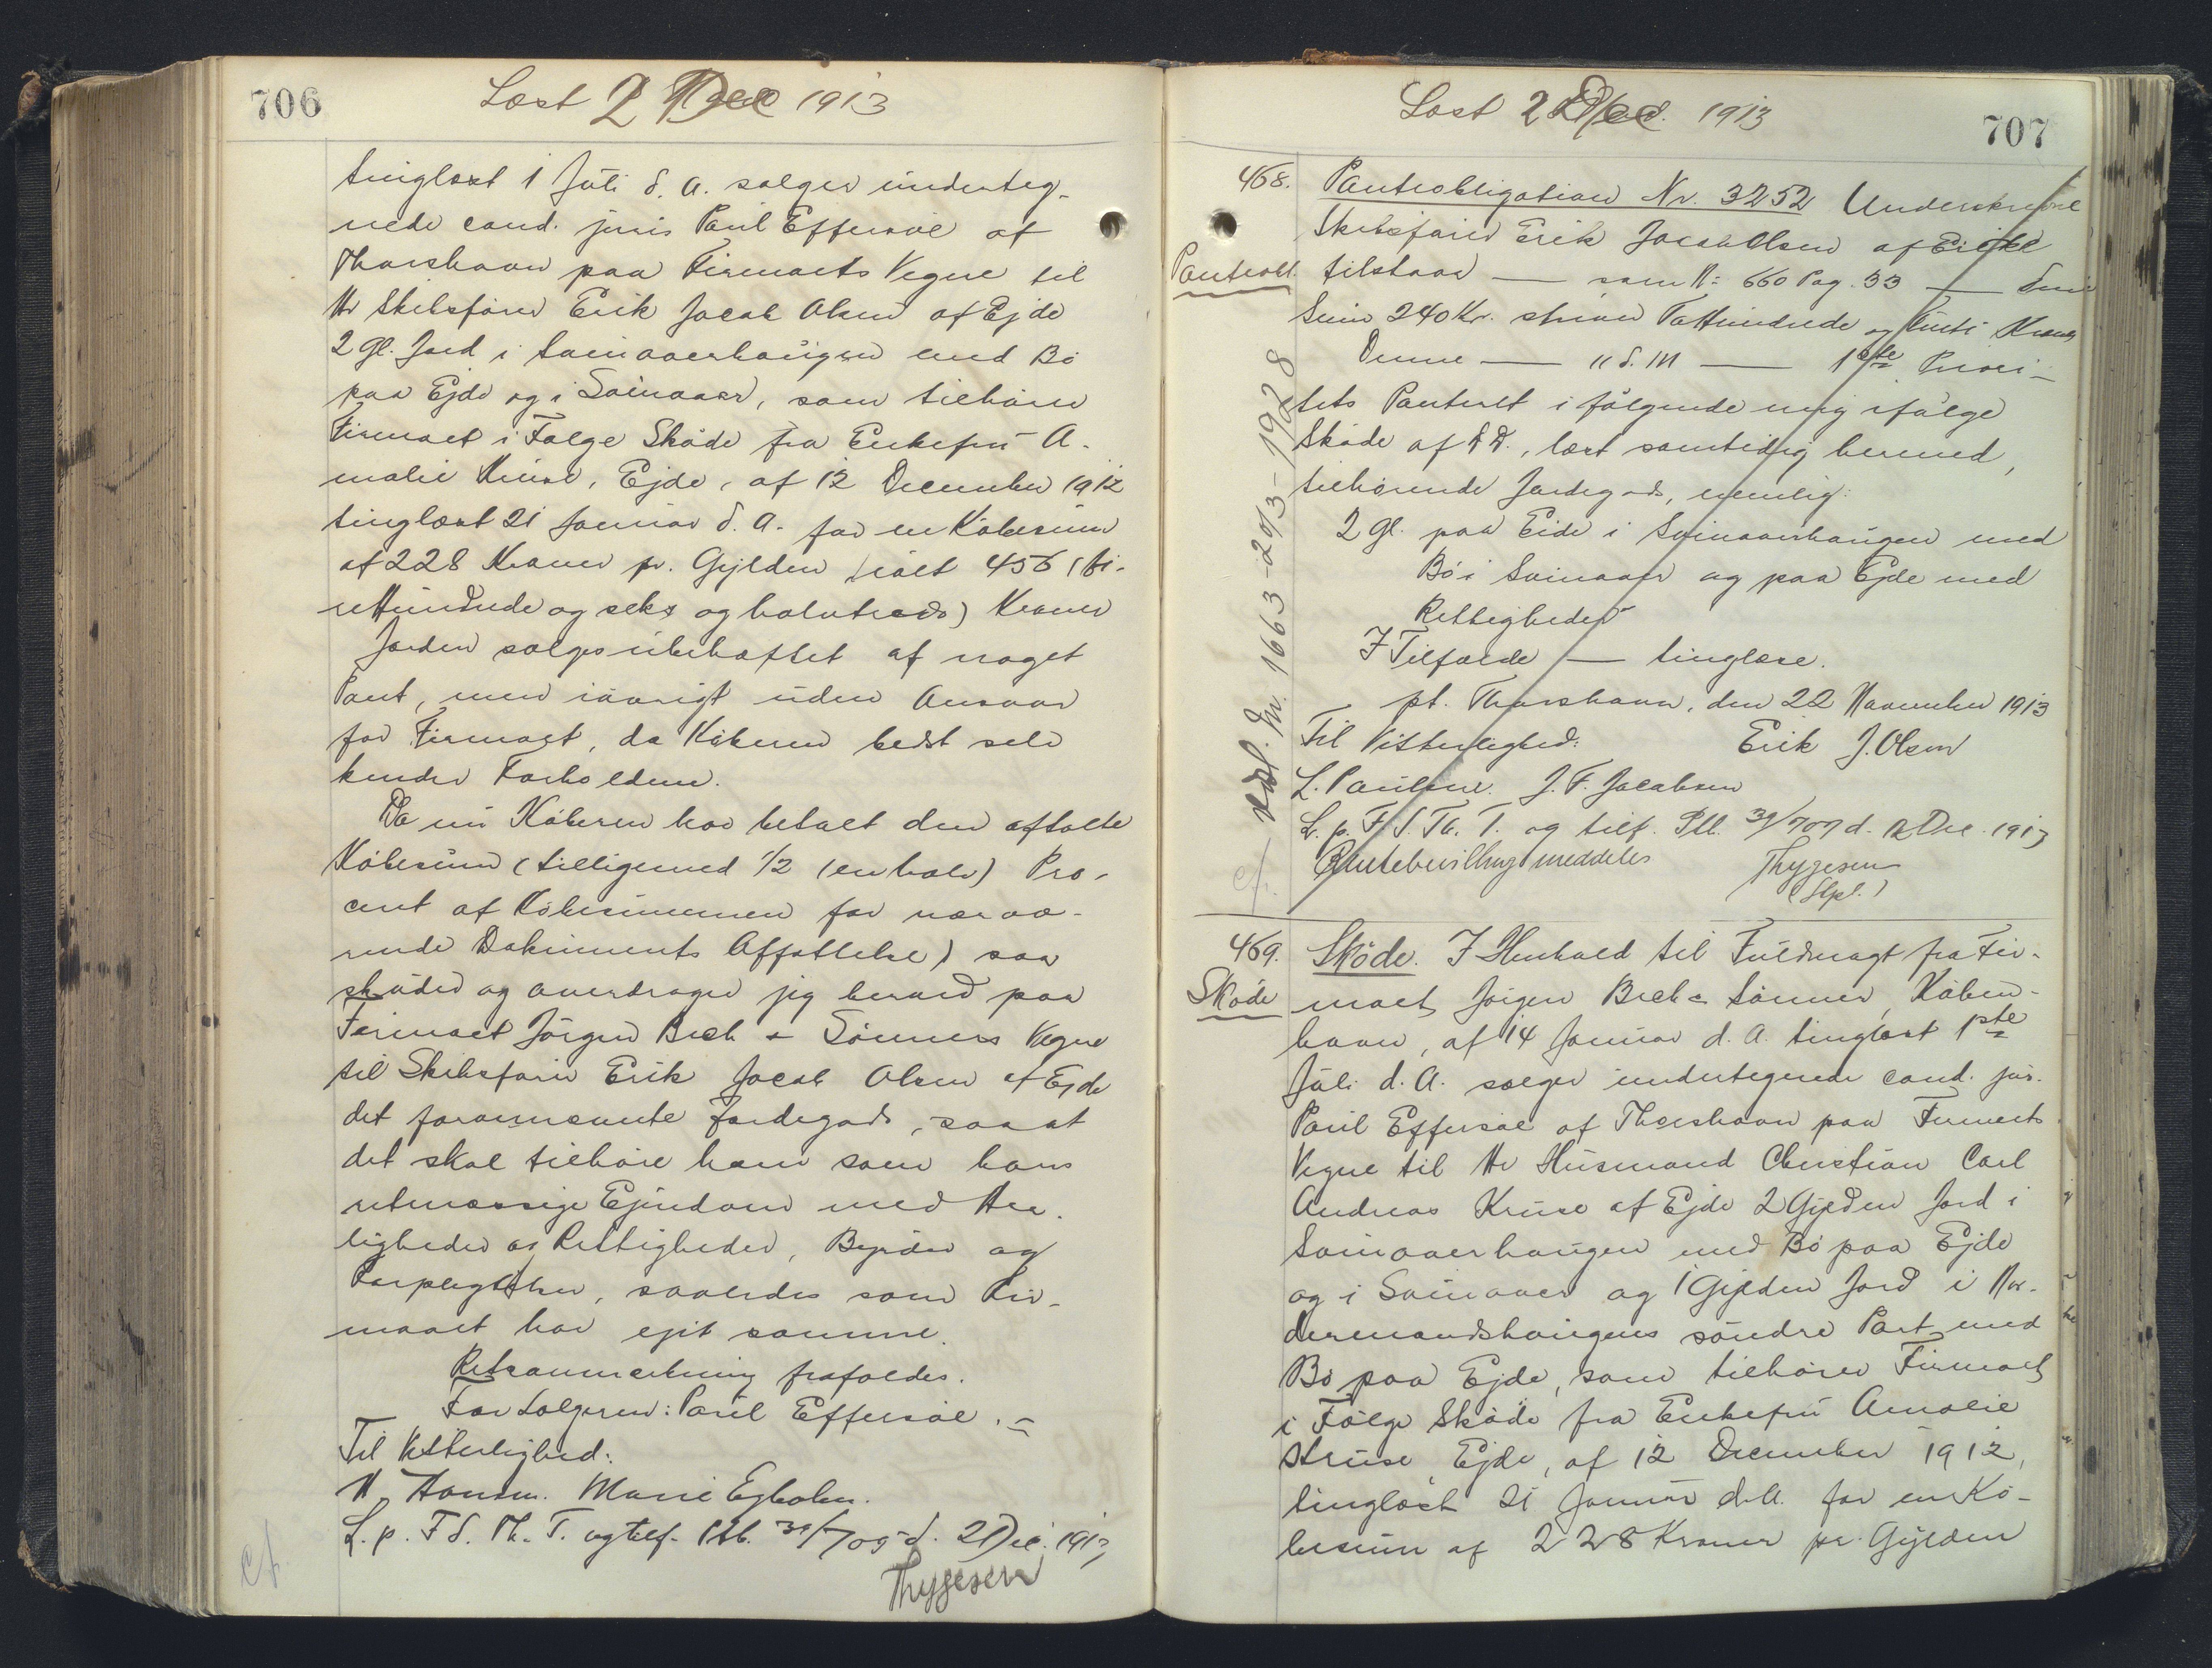 706
Læst 2 Dec 1913
tinglæst 1 Juli d. A. sælger underteg-
nede cand. juris Poul Effersøe af
Thorshavn paa Firmaets Vegne til
Hr Skibsfører Erik Jacob Olsen af Ejde
2 Gl. Jord i Svinaaerhaugen med Bø
paa Ejde og i Svinaaer, som tilhører
Firmaet i Følge Skøde fra Enkefru A-
malie Kruse, Ejde, af 12 December 1912
tinglæst 21 Januar d. A. for en Købesum
af 228 Kroner pr. Gylden ialt 456 (fi-
rehundrede og seks og halvtreds) Kroner
Jorden sælges ubehæftet af noget
Pant, men iøvrigt uden Ansvar
for Firmaet, da Køberen bedst selv
kender Forholdene.
Da nu Køberen har betalt den aftalte
Købesum (tilligemed 1/2 (en halv) Pro-
cent af Købesummen for nærvæ-
rende Dokuments Affattelse) saa
skøder og overdrager jeg herved paa
Firmaet Jörgen Bech & Sönners Vegne
til Skibsfører Erik Jacob Olsen af Ejde
det forannævnte Jordegods, saa at
det skal tilhøre ham som hans
retmæssige Ejendom med Her-
ligheder og Rettigheder, Byrder og
Forpligtelser, saaledes som Fir-
maet har ejet samme.
Retsanmerkning frafaldes.
For Sælgeren: Poul Effersøe.
Til Vitterlighed:
H. Hansen. Marie Egholm.
L. p. F. S. Th. T. og tilf. Ptb. 30/705 d. 2 Dec. 1913
Thygesen
707
Læst 2 Dec. 1913
468. Pantobligation Nr. 3252 Underskrevne
Skibsfører Erik Jacob Olsen af Ejde
Pantobl. tilstaar — som N: 660 Pag. 33 — den
Sum 240 Kr. skriver To Hundrede og Firti Kroner
Denne — u. d. M — 1ste Priori-
tets Panteret i følgende mig ifølge
Skøde af D.D., læst samtidig hermed,
tilhørende Jordegods, nemlig:
2 Gl. paa Eide i Svinaaerhaugen med
Bø i Svinaaer og paa Ejde med
Rettigheder
I Tilfælde — tinglæse.
pt. Thorshavn, den 22 November 1913
Til Vitterlighed: Erik J. Olsen
L. Poulsen. J. F. Jacobsen
L. p. F. S. Th. T. og tilf. Ptb. 30/707 d. 2 Dec. 1913
Rentebevilling meddeles Thygesen
(Stpl.)
Udsl. Jn. 1663 - 29/3 - 1928
469. Skøde. I Henhold til Fuldmagt fra Fir-
Skøde maet Jörgen Bech & Sönner, Köben-
havn, af 14 Januar d. A. tinglæst 1ste
Juli d. A. sælger undertegnede cand. jur.
Poul Effersøe af Thorshavn paa Firmaets
Vegne til Hr Husmand Christian Carl
Andreas Kruse af Ejde 2 Gylden Jord i
Svinaaerhaugen med Bø paa Ejde
og i Svinaaer og 1 Gylden Jord i Nor-
dermandshaugens søndre Part med
Bø paa Ejde, som tilhører Firmaet
i Følge Skøde fra Enkefru Amalie
Kruse, Ejde, af 12 December 1912,
tinglæst 21 Januar d. A. for en Kø-
besum af 228 Kroner pr. Gylden